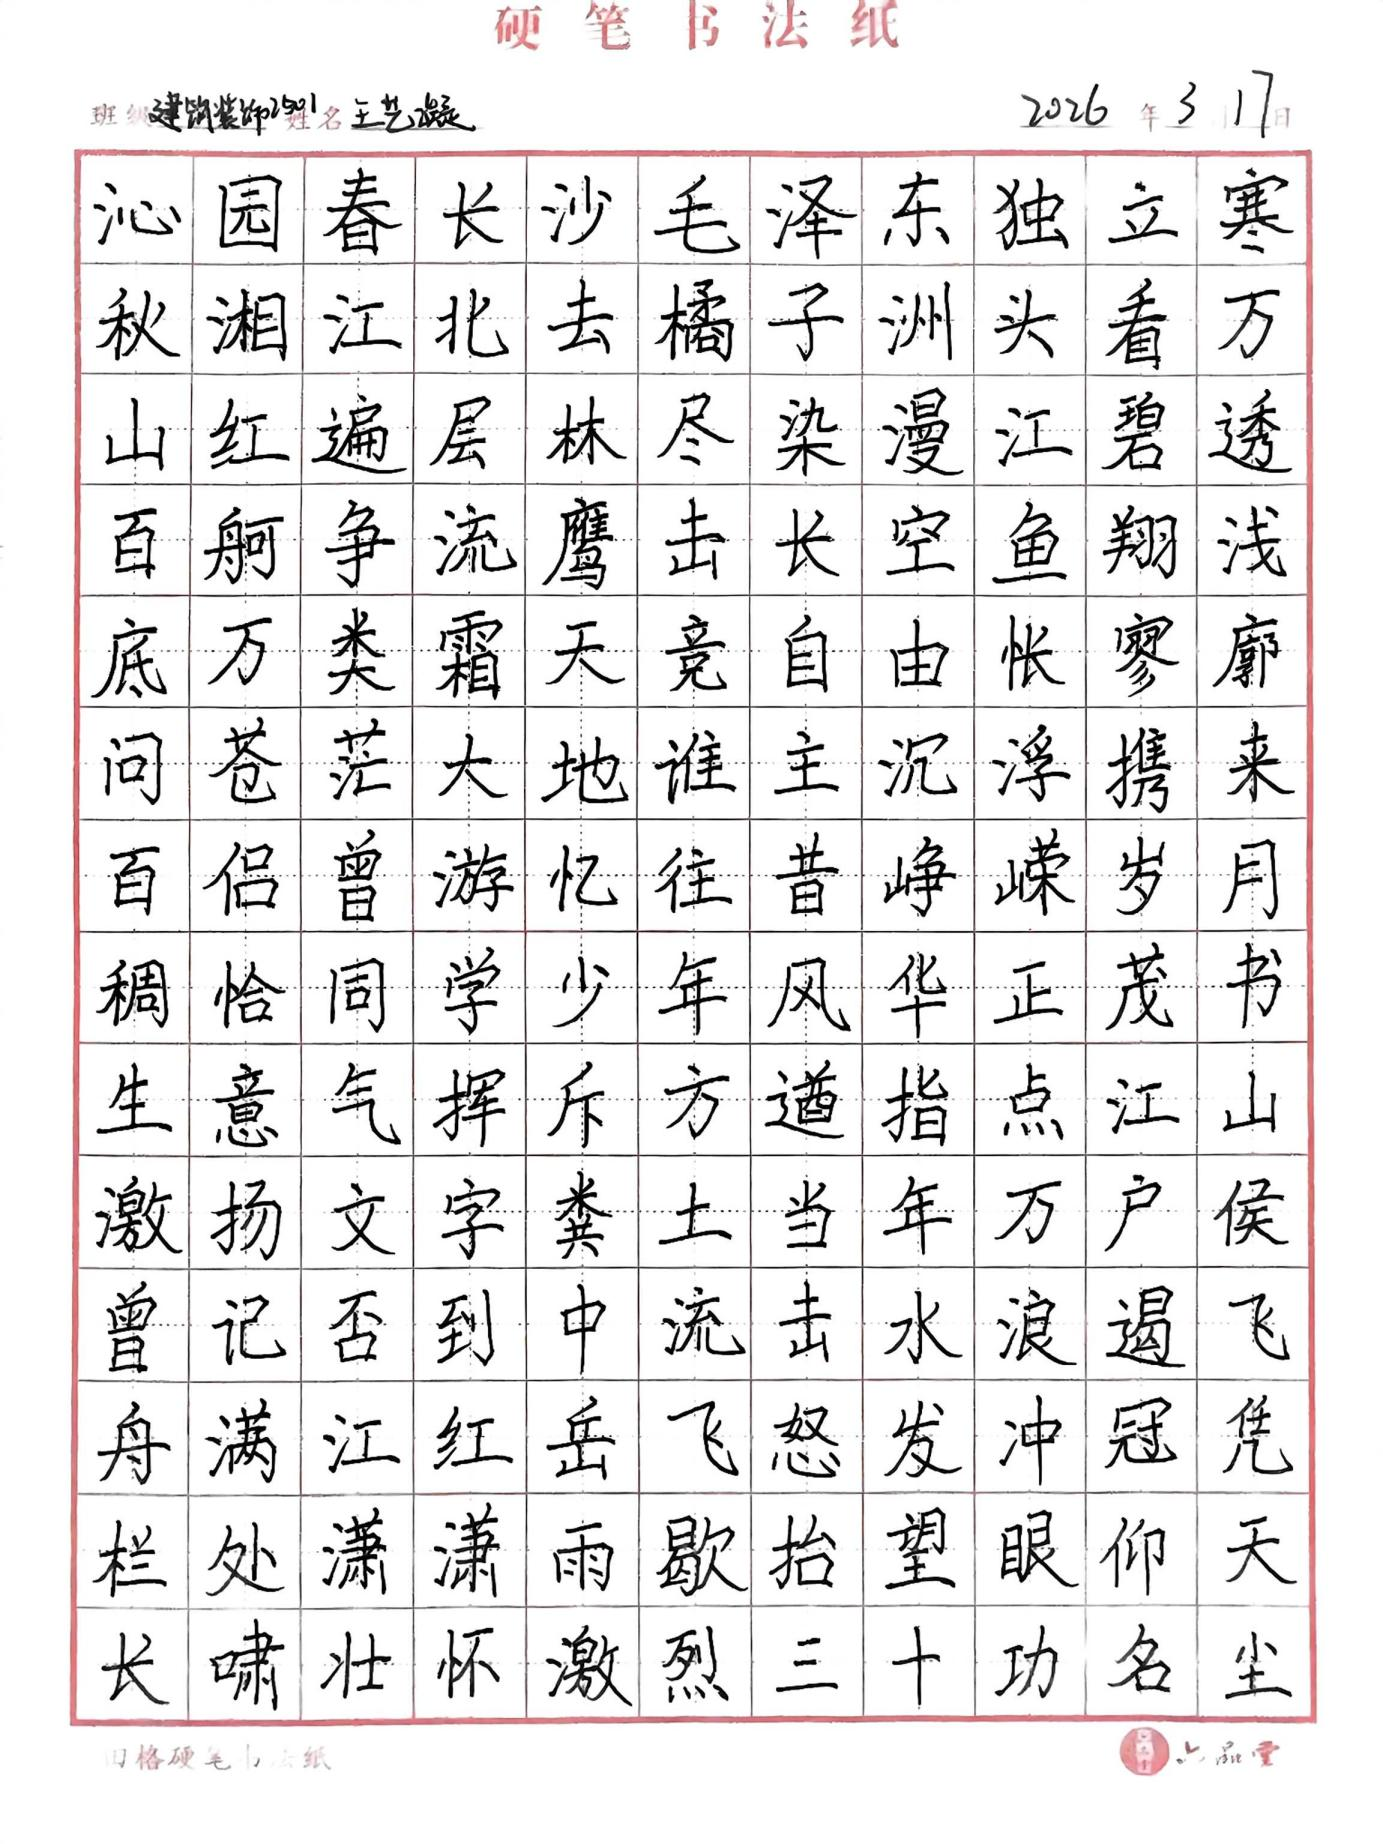 硬笔书法纸
班级 建筑装饰2501 姓名 王艺凝 2026 年 3 月 17 日
沁园春长沙毛泽东独立寒
秋湘江北去橘子洲头看万
山红遍层林尽染漫江碧透
百舸争流鹰击长空鱼翔浅
底万类霜天竞自由怅寥廓
问苍茫大地谁主沉浮携来
百侣曾游忆往昔峥嵘岁月
稠恰同学少年风华正茂书
生意气挥斥方遒指点江山
激扬文字粪土当年万户侯
曾记否到中流击水浪遏飞
舟满江红岳飞怒发冲冠凭
栏处潇潇雨歇抬望眼仰天
长啸壮怀激烈三十功名尘
田格硬笔书法纸 六品堂